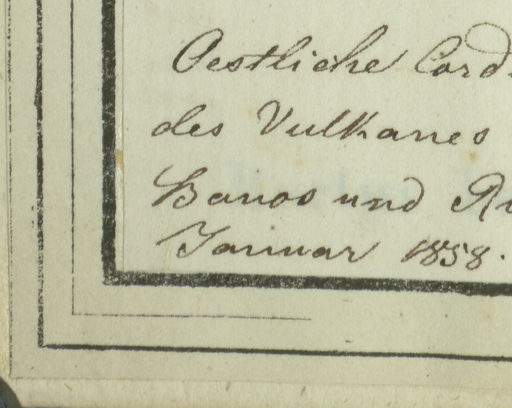 Oestliche Cord
des Vulkanes
Banos und Ri
Januar 1858.